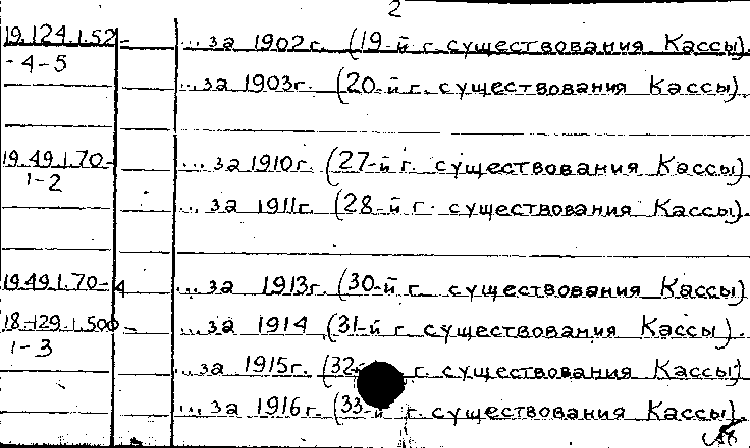 2
19.124.1.52- ...за 1902г. (19-й г. существования Кассы).
-4-5
...за 1903г. (20-й г. существования Кассы).
19.49.1.70- ...за 1910г. (27-й г. существования Кассы).
1-2
...за 1911г. (28-й г. существования Кассы).
19.49.1.70-4 ...за 1913г. (30-й г. существования Кассы)
18-129.1.500- ...за 1914 (31-й г. существования Кассы).
1-3
...за 1915г. (32- г. существования Кассы)
...за 1916г. (33-й г. существования Кассы).